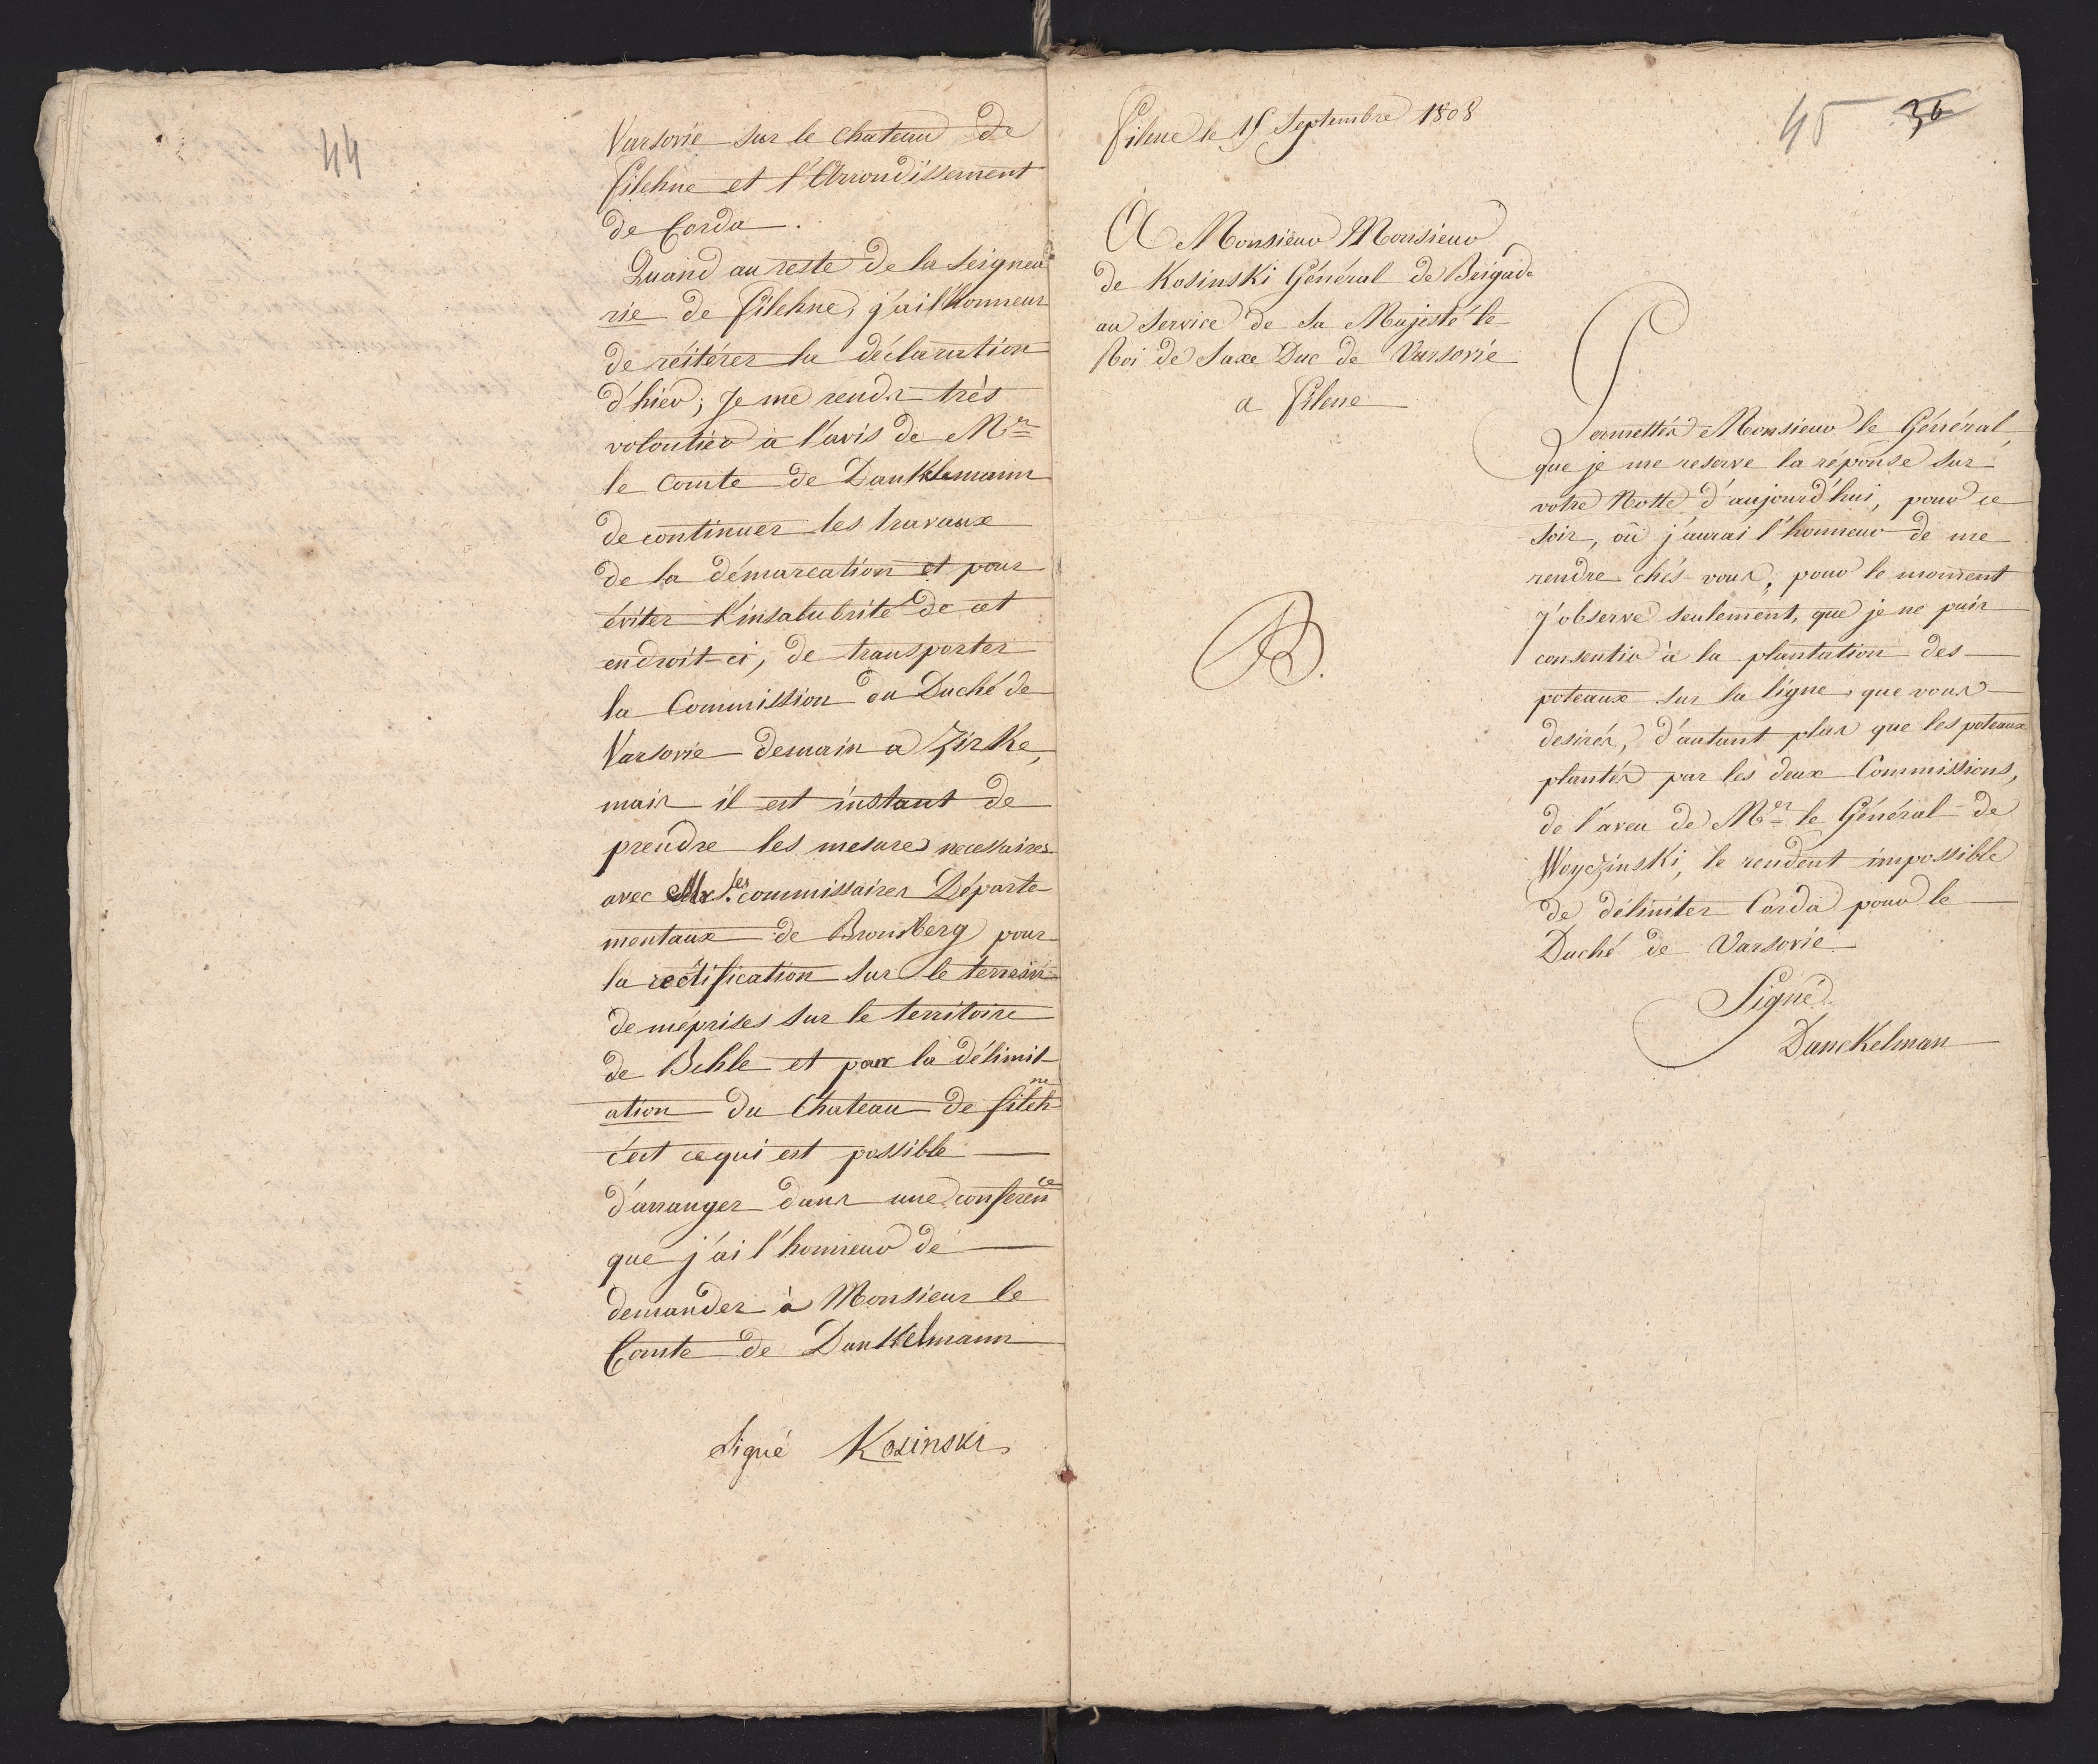 44
Varsovie sur le Chateau de
Filehne et l'Arrondissement
de Corda.
Quand au reste de la Seigneu
rie de Filehne, j'ai l'honneur
de réitérer la déclaration
d'hier; Je me rends très
volontier à l'avis de Mr
le Comte de Dankelmann
de continuer les travaux
de la démarcation et pour
éviter l'insalubrité de cet
endroit-ci, de transporter
la Commission du Duché de
Varsovie demain a Zirke,
mais il est instant de
prendre les mesures necessaires
avec les commissaires Départe-
mentaux de Bromberg pour
la rectification sur le terrein
de méprises sur le territoire
de Behle et par la délimit-
ation du Chateau de Fileh
ne
c'est ce qui est possible
d'arranger dans une conferen
ce
que j'ai l'honneur de
demander à Monsieur le
Comte de Dankelmann
Signé Kosinski
45 36
Filene le 15 Septembre 1808
A Monsieur Monsieur
de Kosinski Général de Brigade
au Service de Sa Majesté le
Roi de Saxe Duc de Varsovie
a Filene
B.
Permettés Monsieur le Général,
que je me reserve la réponse sur
votre Notte d'aujourd'hui, pour ce
soir, où j'aurai l'honneur de me
rendre chés-vous, pour le moment
j'observe seulement, que je ne puis
consentir à la plantation des
poteaux sur la ligne, que vous
desirés, d'autant plus que les poteaux
plantés par les deux Commissions,
de l'aveu de Mr le Général de
Woyczinski, le rendent impossible
de délimiter Corda pour le
Duché de Varsovie
Signé
Danckelman